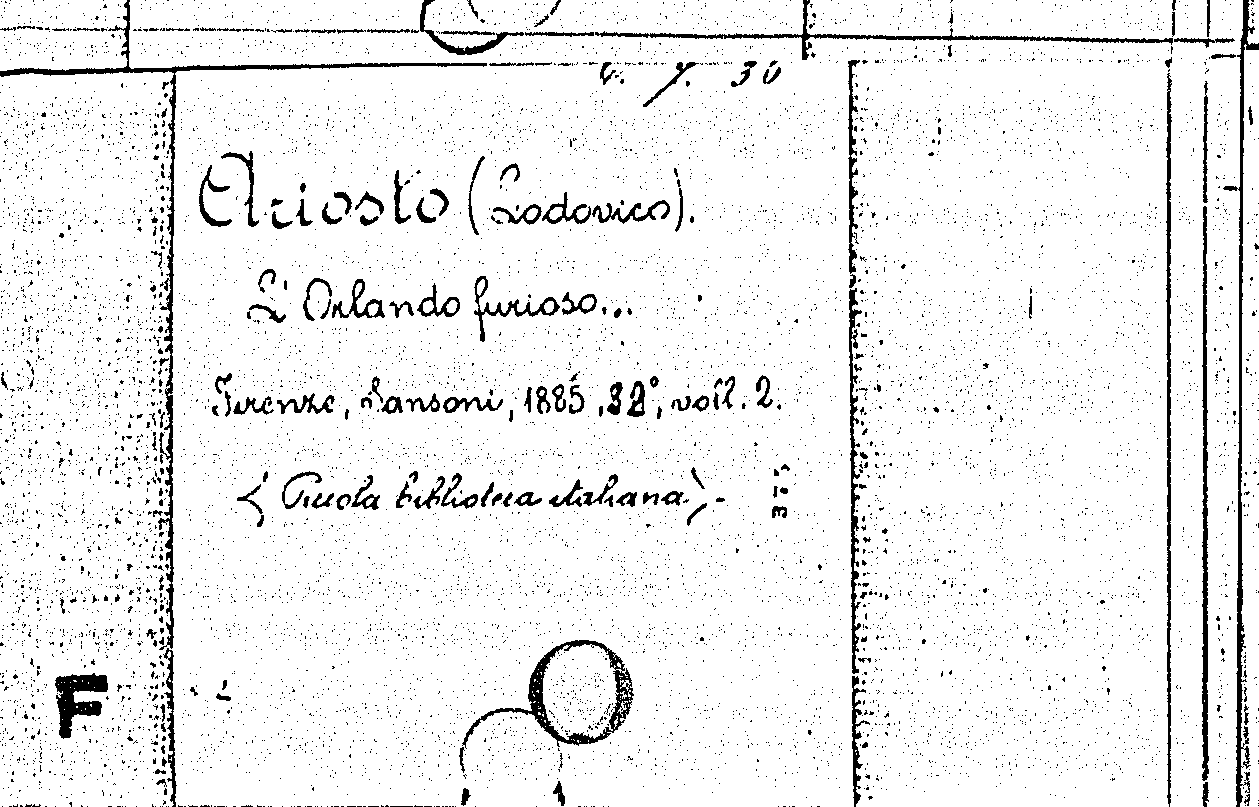 y. 30
Ariosto (Lodovico).
L'Orlando furioso...
Firenze, Sansoni, 1885, 32°, voll. 2.
(Piccola biblioteca italiana).-
377
F